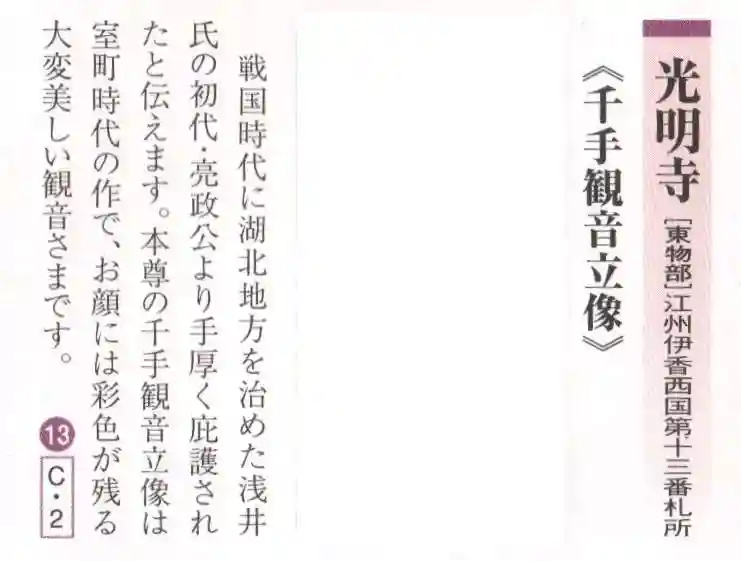 光明寺 [東物部]江州伊香西国第十三番札所
《千手観音立像》
戦国時代に湖北地方を治めた浅井
氏の初代・亮政公より手厚く庇護され
たと伝えます。本尊の千手観音立像は
室町時代の作で、お顔には彩色が残る
大変美しい観音さまです。 13 C・2